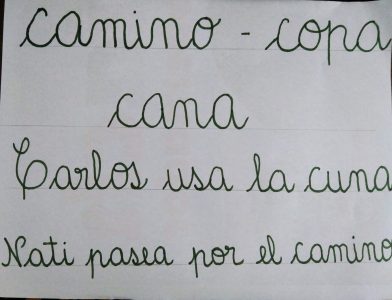 camino - copa
cana
Carlos usa la cuna
Nati pasea por el camino